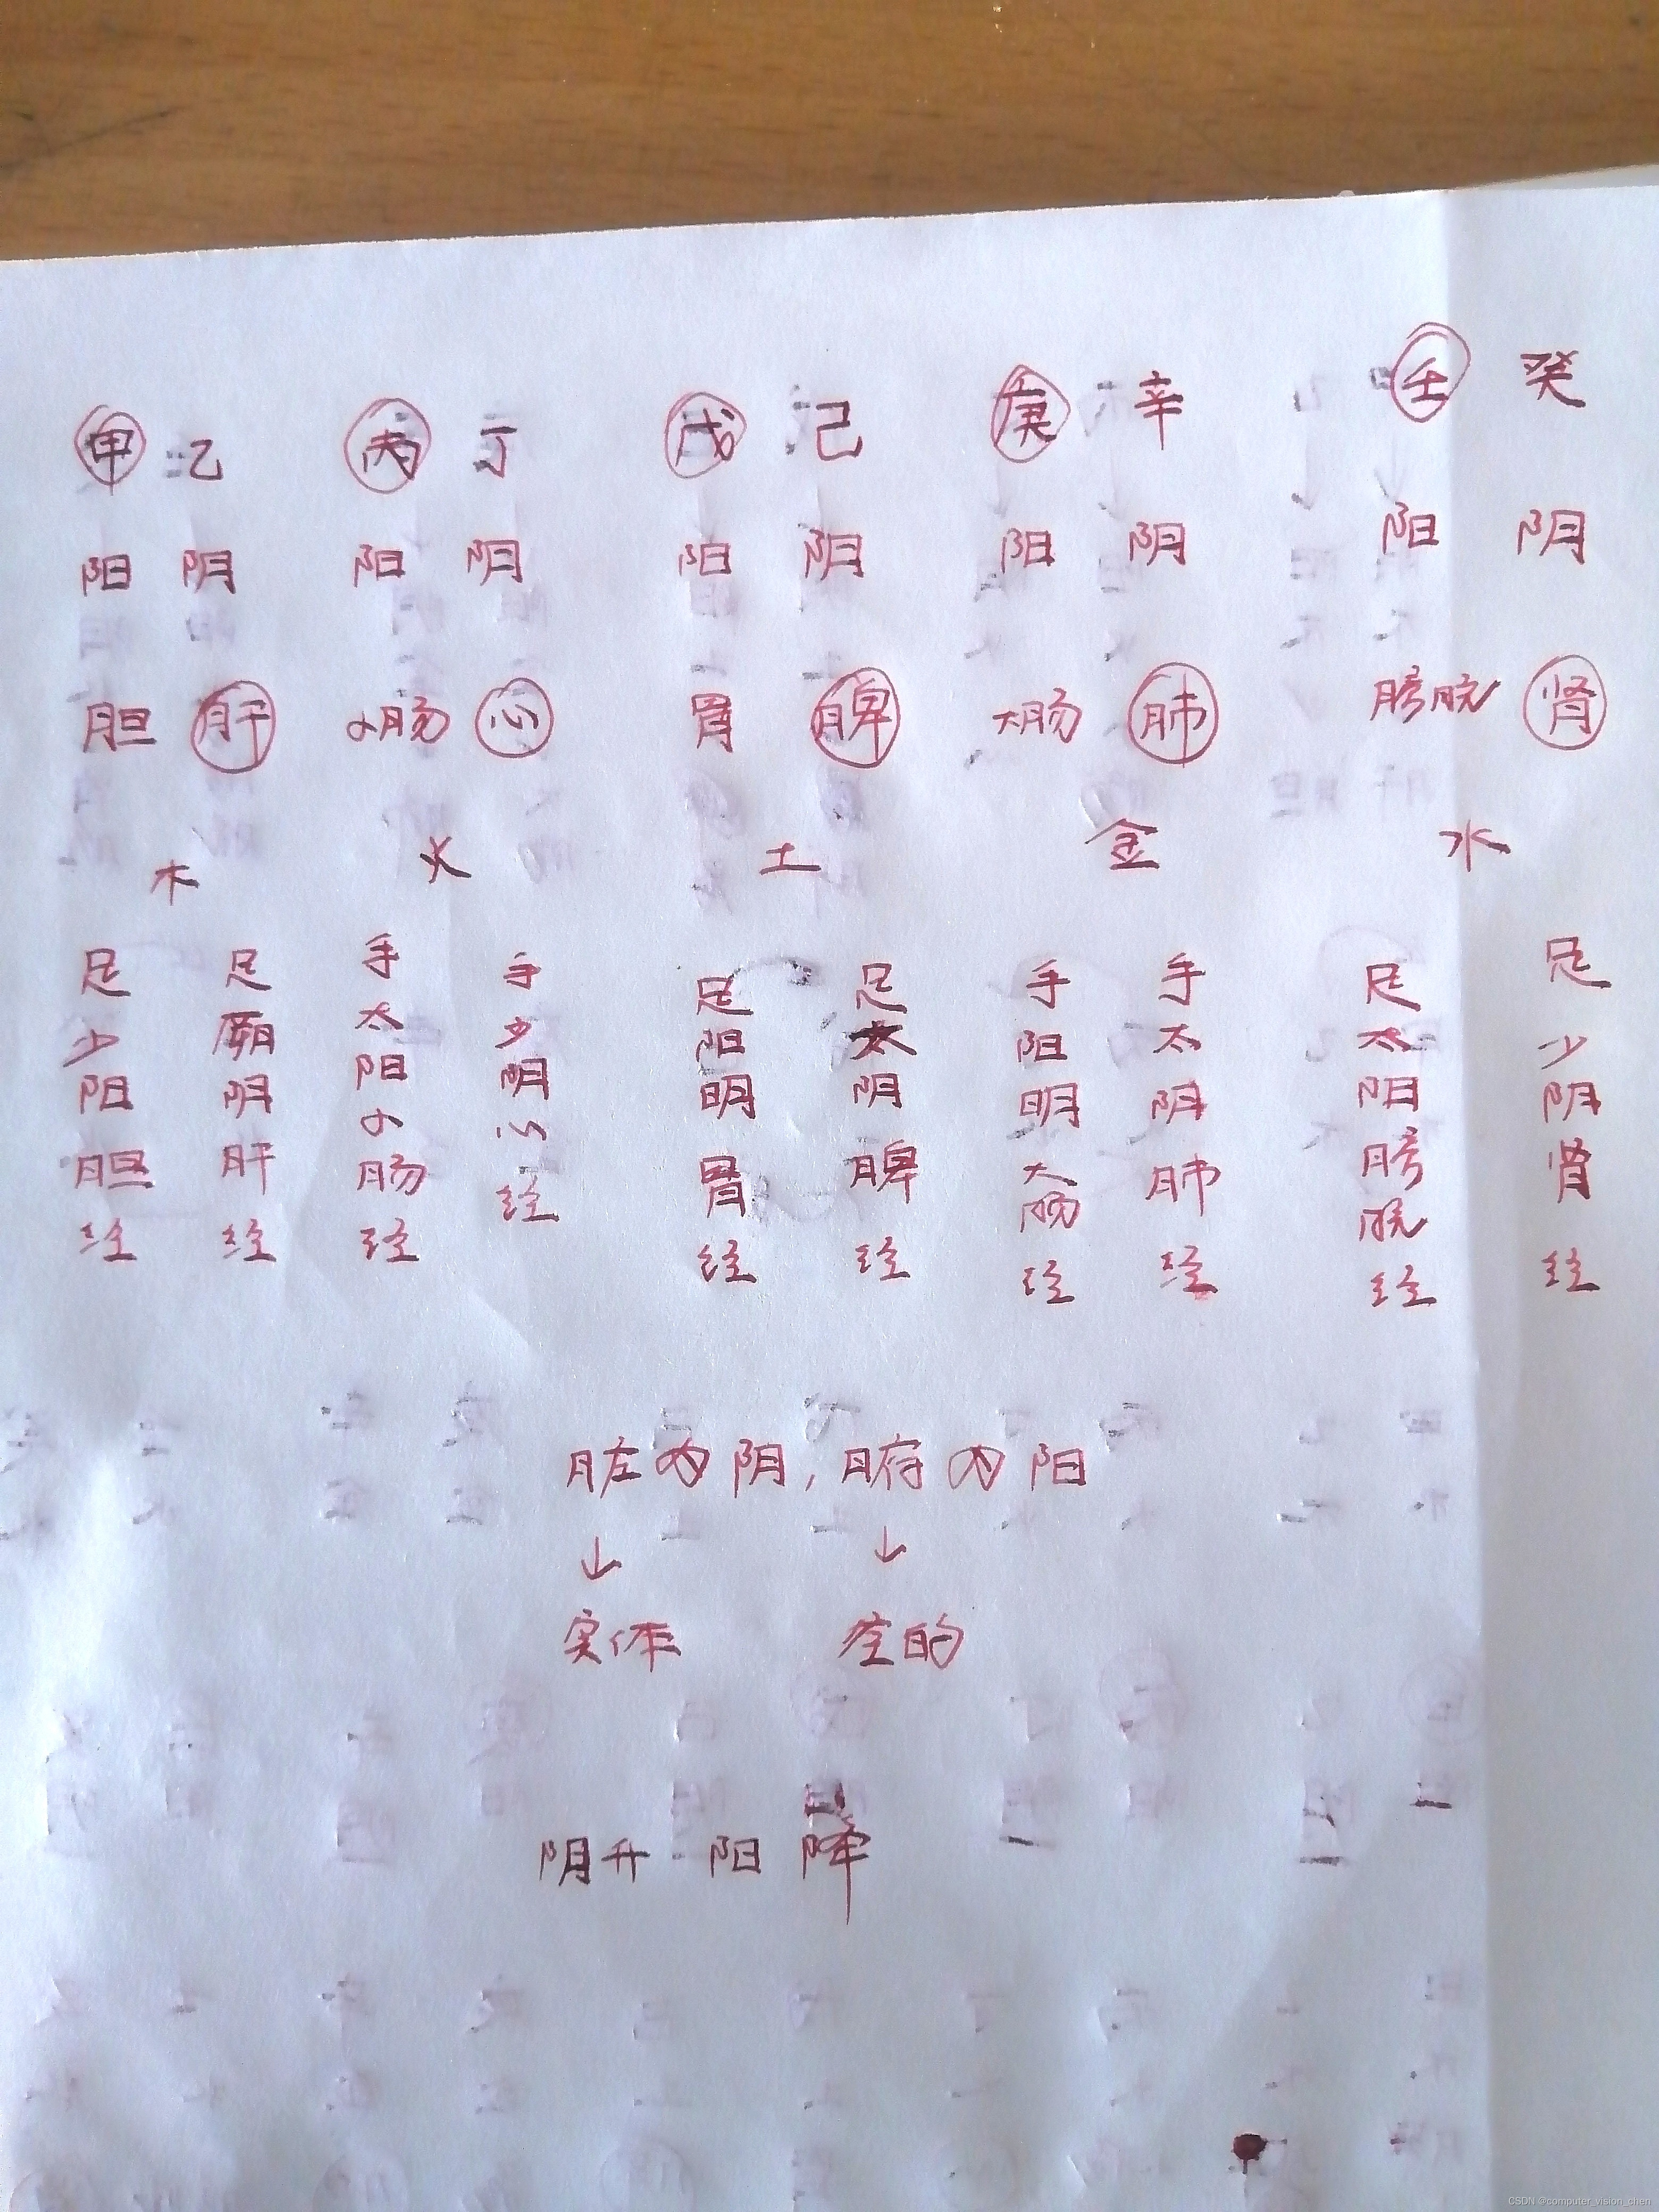 甲 乙 丙 丁 戊 己 庚 辛 壬 癸
阳 阴 阳 阴 阳 阴 阳 阴 阳 阴
胆 肝 小肠 心 胃 脾 大肠 肺 膀胱 肾
木 火 土 金 水
足少阳胆经
足厥阴肝经
手太阳小肠经
手少阴心经
足阳明胃经
足太阴脾经
手阳明大肠经
手太阴肺经
足太阳膀胱经
足少阴肾经
脏为阴,腑为阳
↓ ↓
实体 空的
阴升 阳降
CSDN @computer_vision_chen